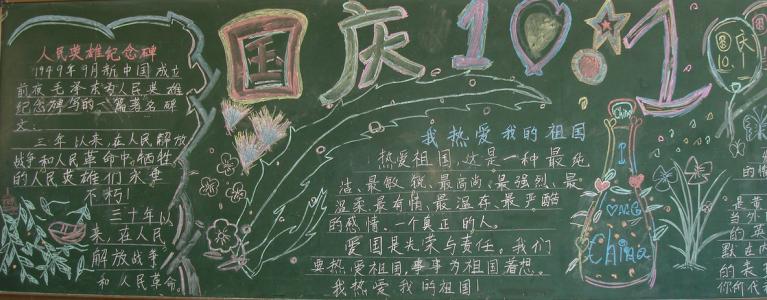 人民英雄纪念碑
1949年9月新中国成立
前夜毛泽东为人民英雄
纪念碑写的一篇著名碑
文:
三年以来,在人民解放
战争和人民革命中牺牲
的人民英雄们永垂
不朽!
三十年以
来,在人民
解放战争
和人民革命
国庆10·1
我热爱我的祖国
热爱祖国,这是一种最纯
洁、最敏锐、最高尚、最强烈、最
温柔、最有情、最温存、最严酷
的感情。一个真正的人。
爱国是光荣与责任。我们
要热爱祖国,事事为祖国着想。
我热爱我的祖国!
China
I
China
国庆
10.1
的
是黄
当外
的英
默在
的表
你何代